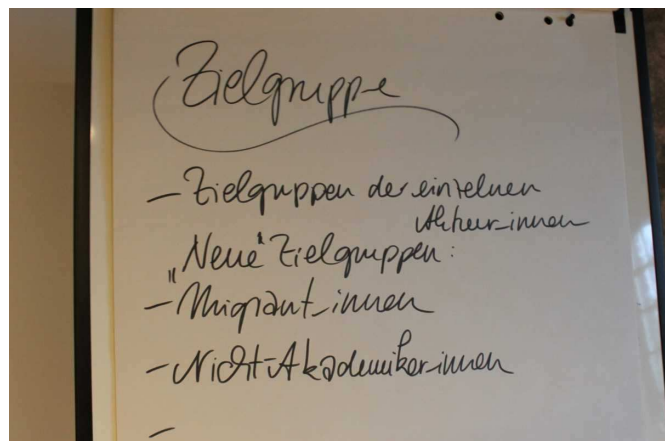 Zielgruppe
– Zielgruppen der einzelnen
Akteur_innen
„Neue“ Zielgruppen:
– Migrant_innen
– Nicht-Akademiker_innen
–